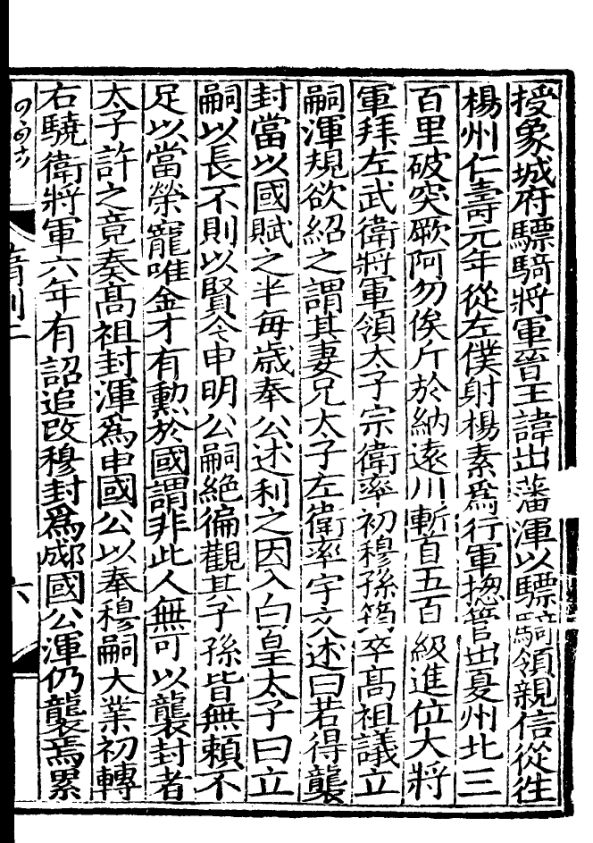 授象城府驃騎將軍晉王諱出藩渾以驃騎領親信從往
楊州仁壽元年從左僕射楊素爲行軍揔管出夏州北三
百里破突厥阿勿俟斤於納遠川斬首五百級進位大將
軍拜左武衛將軍領太子宗衛率初穆孫筠卒髙祖議立
嗣渾規欲紹之謂其妻兄太子左衛率宇文述曰若得襲
封當以國賦之半每歲奉公述利之因入白皇太子曰立
嗣以長不則以賢今申明公嗣絶徧觀其子孫皆無賴不
足以當榮寵唯金才有勲於國謂非此人無可以襲封者
太子許之竟奏髙祖封渾爲申國公以奉穆嗣大業初轉
右驍衛將軍六年有詔追改穆封爲郕國公渾仍襲焉累
六